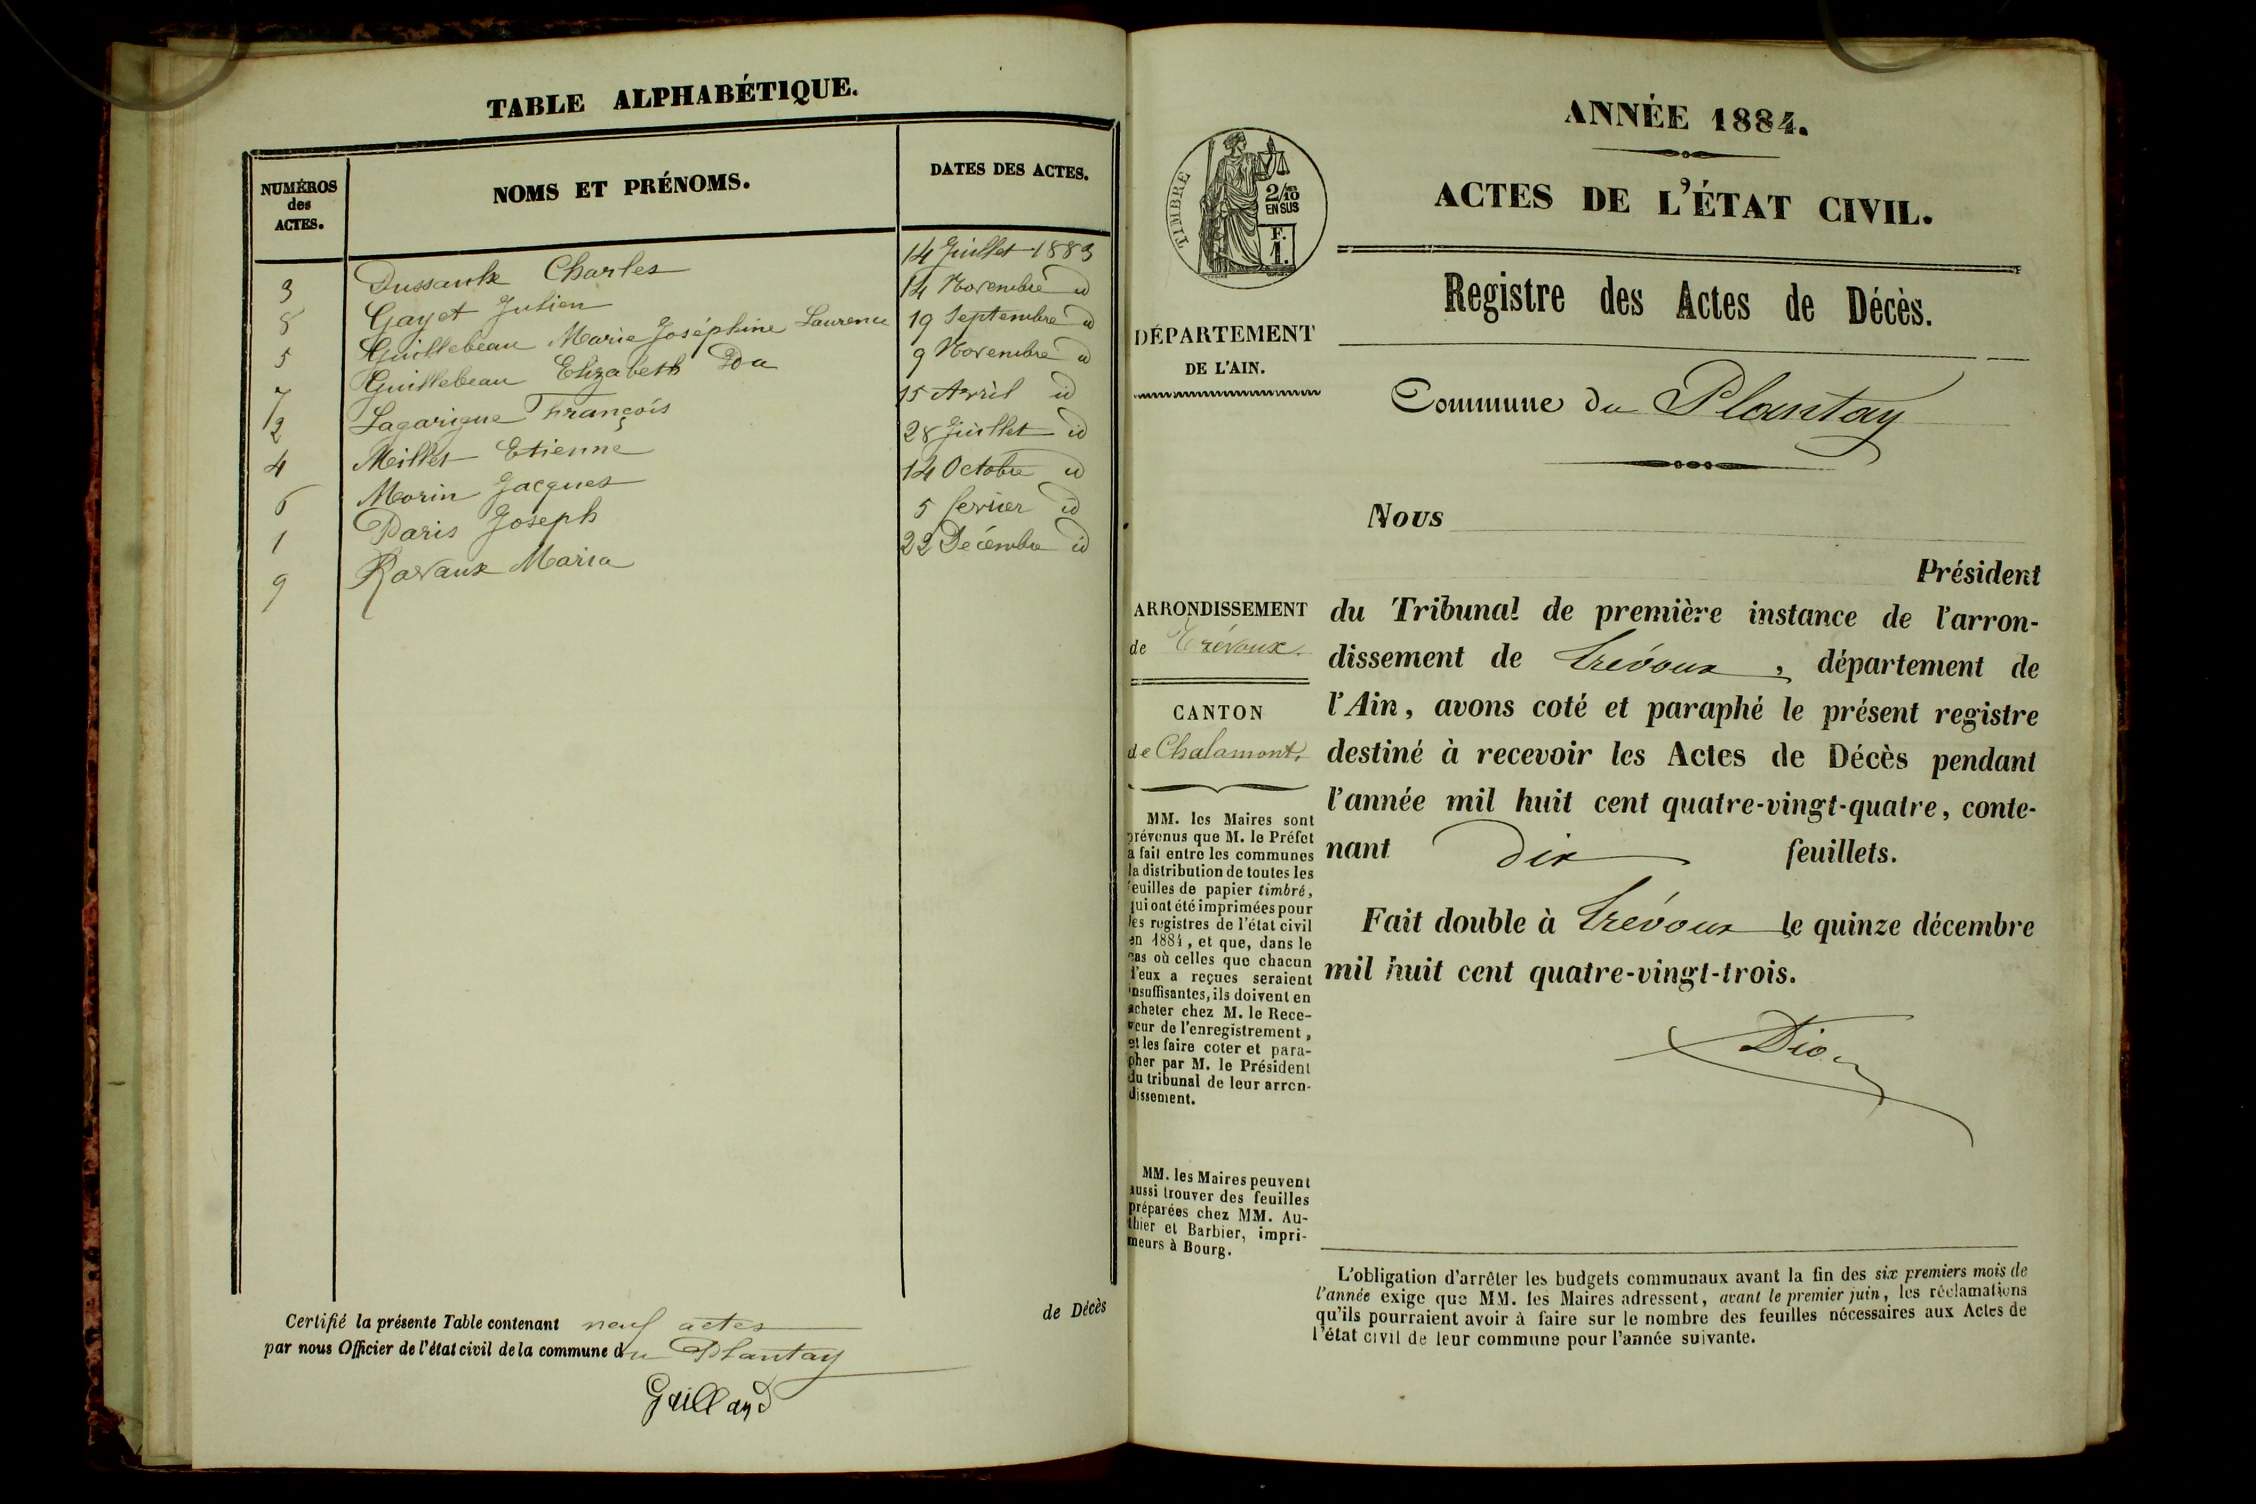 TABLE ALPHABÉTIQUE.
NUMÉROS des ACTES.
NOMS ET PRÉNOMS.
DATES DES ACTES.
3 Dussaulx Charles 14 Juillet 1883
8 Gayet Julien 14 Novembre id
5 Guillebeau Marie Joséphine Laurence 19 Septembre id
7 Guillebeau Elizabeth 9 Novembre id
2 Lagarigue François 15 Avril id
4 Meillet Etienne 28 Juillet id
6 Morin Jacques 14 Octobre id
1 Paris Joseph 5 fevrier id
9 Ravaux Maria 22 Décembre id
Certifié la présente Table contenant neuf actes de Décès
par nous Officier de l'état civil de la commune du Plantay
Gailland
TIMBRE
2/10
EN SUS
F.
1.
DÉPARTEMENT
DE L'AIN.
ARRONDISSEMENT
de Trévoux.
CANTON
de Chalamont.
MM. les Maires sont
prévenus que M. le Préfet
a fait entre les communes
la distribution de toutes les
feuilles de papier timbré,
qui ont été imprimées pour
les registres de l'état civil
en 1884, et que, dans le
cas où celles que chacun
d'eux a reçues seraient
insuffisantes, ils doivent en
acheter chez M. le Rece-
veur de l'enregistrement,
et les faire coter et para-
pher par M. le Président
du tribunal de leur arron-
dissement.
MM. les Maires peuvent
aussi trouver des feuilles
préparées chez MM. Au-
thier et Barbier, impri-
meurs à Bourg.
ANNÉE 1884.
ACTES DE L'ÉTAT CIVIL.
Registre des Actes de Décès.
Commune du Plantay
Nous
Président
du Tribunal de première instance de l'arron-
dissement de Trévoux, département de
l'Ain, avons coté et paraphé le présent registre
destiné à recevoir les Actes de Décès pendant
l'année mil huit cent quatre-vingt-quatre, conte-
nant dix feuillets.
Fait double à Trévoux le quinze décembre
mil huit cent quatre-vingt-trois.
L'obligation d'arrêter les budgets communaux avant la fin des six premiers mois de
l'année exige que MM. les Maires adressent, avant le premier juin, les réclamations
qu'ils pourraient avoir à faire sur le nombre des feuilles nécessaires aux Actes de
l'état civil de leur commune pour l'année suivante.